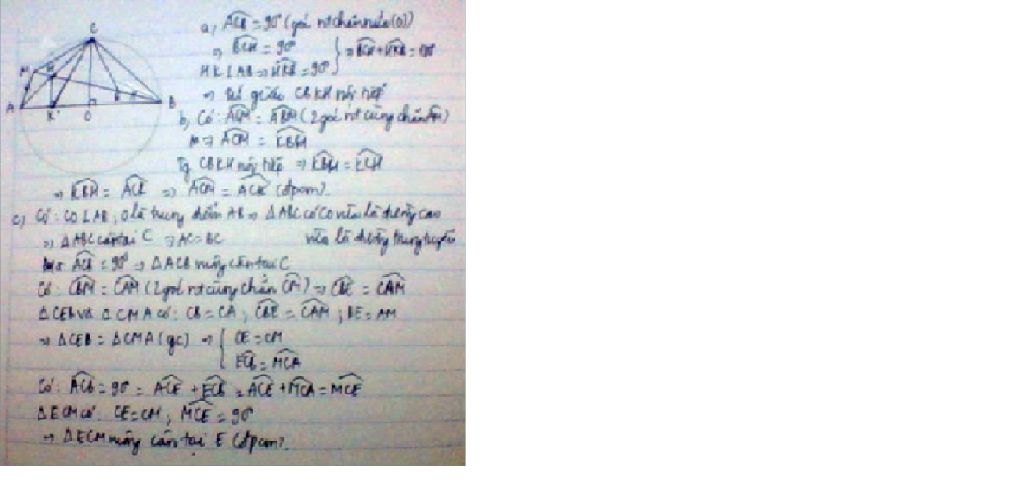 C
M H
A K O B
a, ACB = 90° (góc nt chắn nửa (O))
=> BCH = 90°
HK ⊥ AB => HKB = 90° } => BCH + HKB = 180°
=> tứ giác CBKH nội tiếp
b, Có: ACM = ABM (2 góc nt cùng chắn AM)
=> ACM = KBH
Tg CBKH nội tiếp => KBH = KCH
=> KBH = ACK => ACM = ACK (đpcm).
c) Có: CO ⊥ AB, O là trung điểm AB => ΔABC có CO vừa là đường cao
=> ΔABC cân tại C => AC = BC vừa là đường trung tuyến
Mà ACB = 90° => ΔACB vuông cân tại C
Có: CBM = CAM (2 góc nt cùng chắn CM) => CBE = CAM
ΔCEB và ΔCMA có: CB = CA, CBE = CAM; BE = AM
=> ΔCEB = ΔCMA (cgc) => { CE = CM
ECB = MCA
Có: ACB = 90° = ACE + ECB = ACE + MCA = MCE
ΔECM có: CE = CM; MCE = 90°
=> ΔECM vuông cân tại E (đpcm).